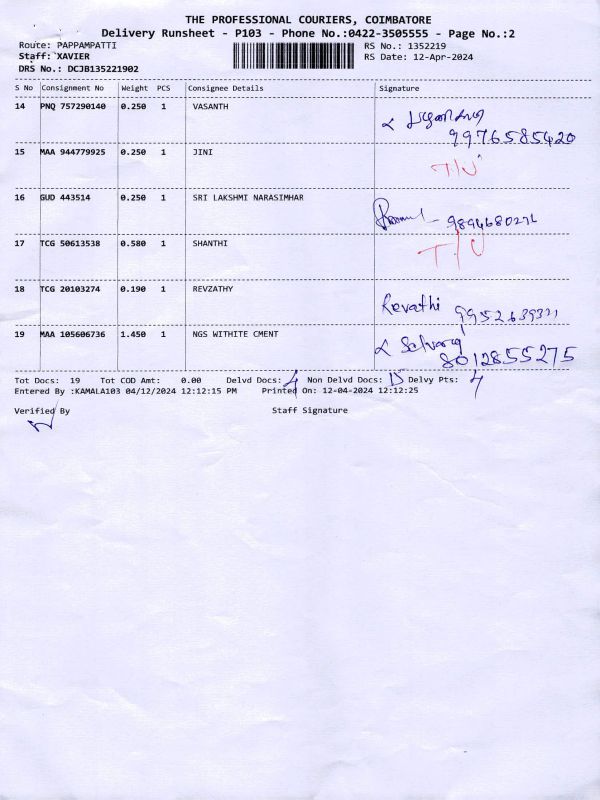 THE PROFESSIONAL COURIERS, COIMBATORE
Delivery Runsheet - P103 - Phone No.:0422-3505555 - Page No.:2
Route: PAPPAMPATTI RS No.: 1352219
Staff: XAVIER RS Date: 12-Apr-2024
DRS No.: DCJB135221902
S No Consignment No Weight PCS Consignee Details Signature
14 PNQ 757290140 0.250 1 VASANTH
9976585420
15 MAA 944779925 0.250 1 JINI T/U
16 GUD 443514 0.250 1 SRI LAKSHMI NARASIMHAR
17 TCG 50613538 0.580 1 SHANTHI T/U
18 TCG 20103274 0.190 1 REVZATHY Revathi
19 MAA 105606736 1.450 1 NGS WITHITE CMENT Selvaraj
8012855275
Tot Docs: 19 Tot COD Amt: 0.00 Delvd Docs: 4 Non Delvd Docs: 15 Delvy Pts: 4
Entered By :KAMALA103 04/12/2024 12:12:15 PM Printed On: 12-04-2024 12:12:25
Verified By Staff Signature